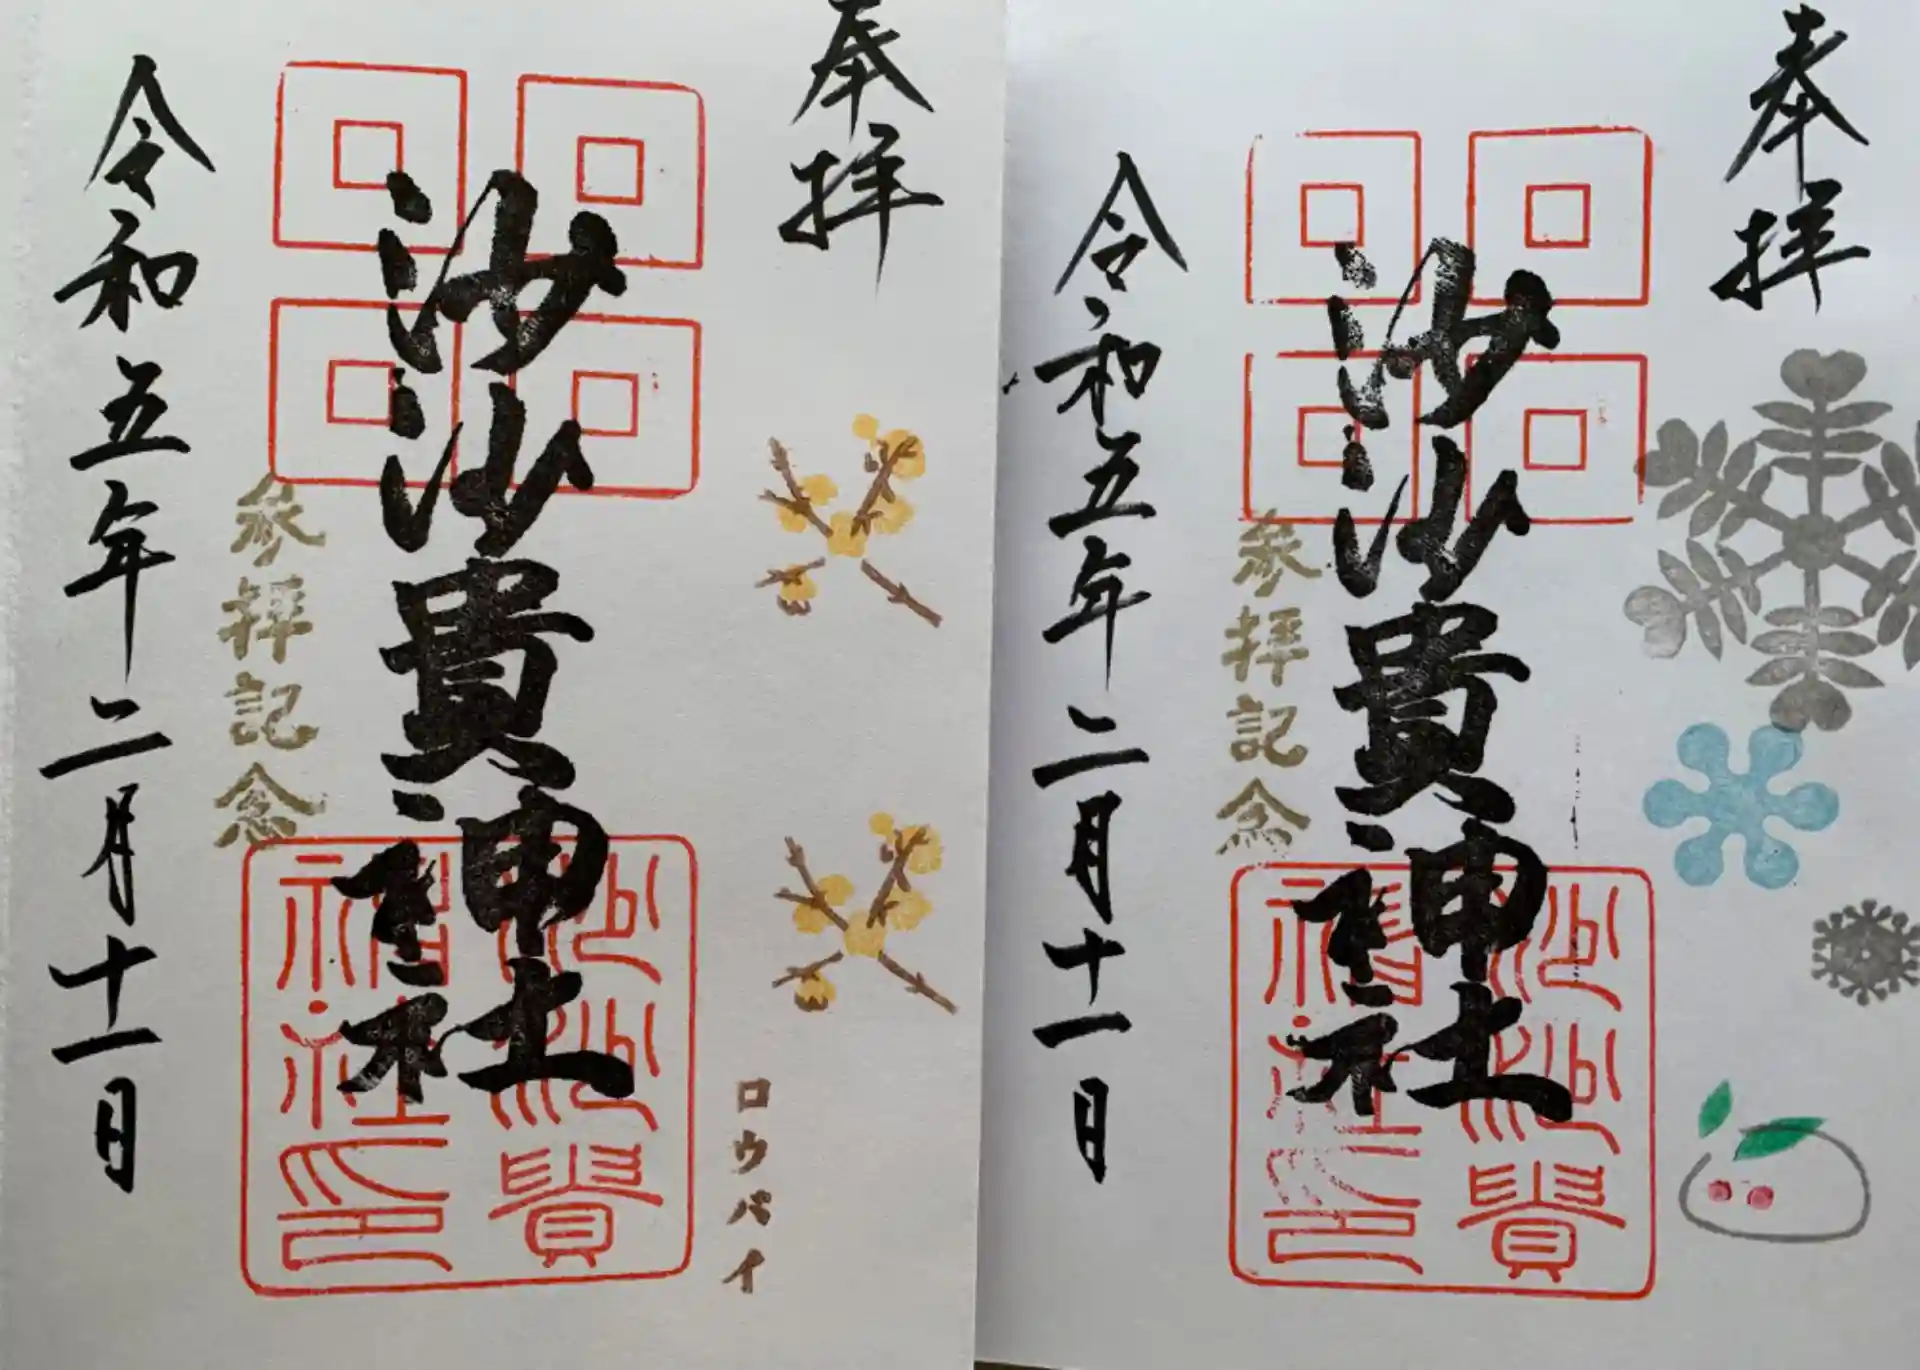 奉拝
沙沙貴神社
沙沙貴
神社印
参拝記念
令和五年二月十一日
奉拝
ロウバイ
沙沙貴神社
沙沙貴
神社印
参拝記念
令和五年二月十一日